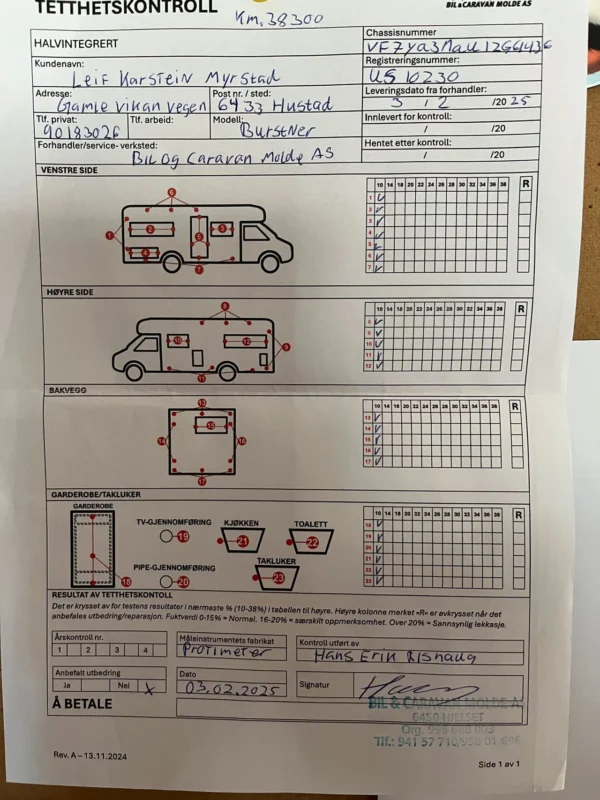 TETTHETSKONTROLL
BIL & CARAVAN MOLDE AS
Km. 38300
HALVINTEGRERT
Chassisnummer
Kundenavn:
Leif Karstein Myrstad
Registreringsnummer:
US 10230
Adresse:
Gamle vikan vegen
Post nr. / sted:
6433 Hustad
Leveringsdato fra forhandler:
3 / 2 /20 25
Tlf. privat:
90183026
Tlf. arbeid:
Modell:
Burstner
Innlevert for kontroll:
/ /20
Forhandler/service- verksted:
Bil og Caravan Molde AS
Hentet etter kontroll:
/ /20
VENSTRE SIDE
10 14 18 20 22 24 26 28 30 32 34 36 38 R
1
2
3
4
5
6
7
6
1 2 5 3
4
7
HØYRE SIDE
10 14 18 20 22 24 26 28 30 32 34 36 38 R
8
9
10
11
12
8
10 12 9
11
BAKVEGG
10 14 18 20 22 24 26 28 30 32 34 36 38 R
13
14
15
16
17
13
14 15 16
17
GARDEROBE/TAKLUKER
10 14 18 20 22 24 26 28 30 32 34 36 38 R
18
19
20
21
22
23
GARDEROBE
18
TV-GJENNOMFØRING
19
KJØKKEN
21
TOALETT
22
PIPE-GJENNOMFØRING
20
TAKLUKER
23
RESULTAT AV TETTHETSKONTOLL
Det er krysset av for testens resultater i nærmeste % (10-38%) i tabellen til høyre. Høyre kolonne merket «R» er avkrysset når det
anbefales utbedring/reparasjon. Fuktverdi 0-15% = Normal. 16-20% = særskilt oppmerksomhet. Over 20% = Sannsynlig lekkasje.
Årskontroll nr.
1 2 3 4
Måleinstrumentets fabrikat
Protimeter
Kontroll utført av
Hans Erik Rishaug
Anbefalt utbedring
Ja Nei X
Dato
03.02.2025
Signatur
Å BETALE
BIL & CARAVAN MOLDE AS
6450 HJELSET
Rev. A – 13.11.2024
Side 1 av 1